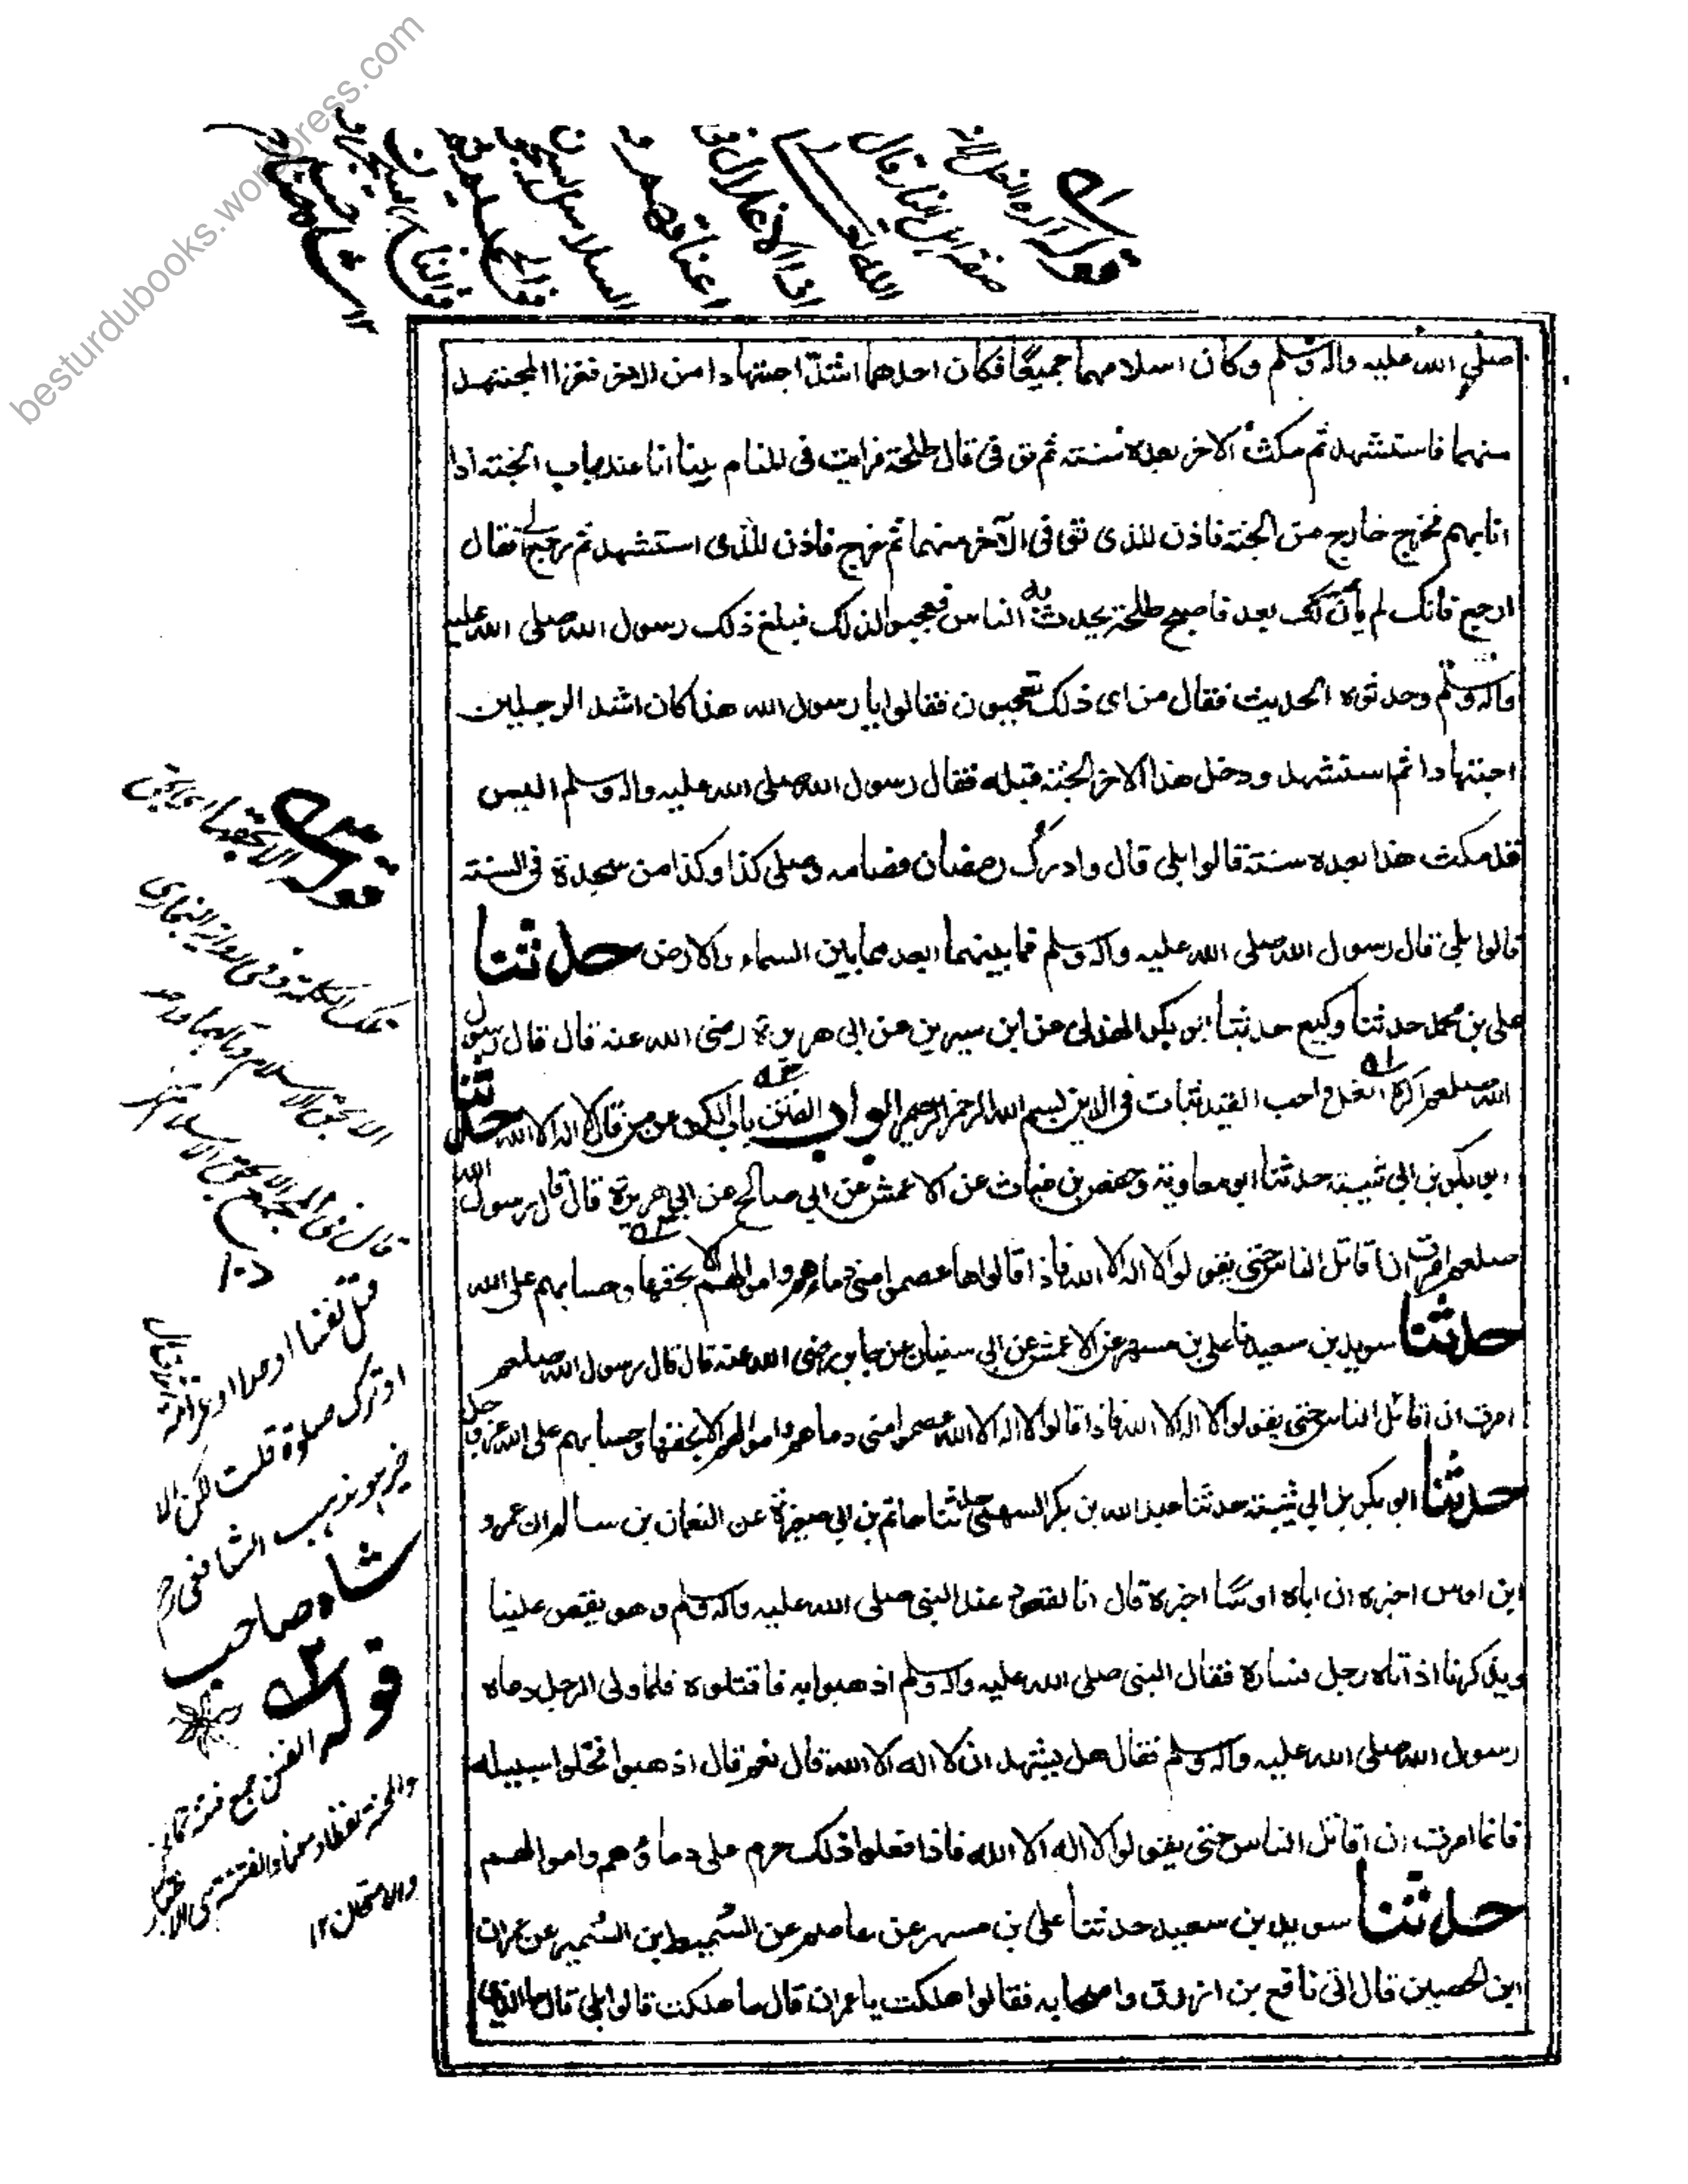 besturdubooks.wordpress.com
صلى الله عليه واله وسلم وكان اسلامهما جميعًا فكان احدهما اشدّ اجتهادا من الاخر فغزا المجتهد
منهما فاستشهد ثم مكث الاخر بعده سنته ثم توفى قال طلحة فرايت فى المنام بينا انا عند باب الجنته اذا
انا بهم فخرج خارج من الجنته فاذن للذى توفى الآخر منهما ثم خرج فاذن للذى استشهد ثم رجع الى فقال
ارجع فانك لم يأن لك بعد فاصبح طلحة يحدث به الناس فعجبوا لذلك فبلغ ذلك رسول الله صلى الله عليه
واله وسلم وحدثوه الحديث فقال من اى ذلك تعجبون فقالوا يا رسول الله هذا كان اشد الرجلين
اجتهادا ثم استشهد ودخل هذا الاخر الجنته قبله فقال رسول الله صلى الله عليه واله وسلم اليس
قد مكث هذا بعده سنته قالوا بلى قال وادرك رمضان فصامه وصلى كذا وكذا من سجدة فى السنته
قالوا بلى قال رسول الله صلى الله عليه واله وسلم فما بينهما ابعد مما بين السماء والارض حدثنا
على بن محمد حدثنا وكيع حدثنا ابو بكر الهذلى عن ابن سيرين عن ابى هريرة رضى الله عنه قال قال رسول
الله صلعم اكره الغل واحب القيد ثبات فى الدين بسم الله الرحمن الرحيم ابواب الفتن باب الكف عمن قال لا اله الا الله حدثنا
ابو بكر بن ابى شيبته حدثنا ابو معاوية وحفص بن غياث عن الاعمش عن ابى صالح عن ابى هريرة قال قال رسول الله
صلعم امرت ان اقاتل الناس حتى يقولوا لا اله الا الله فاذا قالوها عصموا منى دماءهم واموالهم الا بحقها وحسابهم على الله
حدثنا سويد بن سعيد نا على بن مسهر عن الاعمش عن ابى سفيان عن جابر رضى الله عنه قال قال رسول الله صلعم
امرت ان اقاتل الناس حتى يقولوا لا اله الا الله فاذا قالوا لا اله الا الله عصموا منى دماءهم واموالهم الا بحقها وحسابهم على الله عز وجل
حدثنا ابو بكر بن ابى شيبته حدثنا عبد الله بن بكر السهمى حدثنا حاتم بن ابى صغيرة عن النعمان بن سالم ان عمرو
ابن اوس اخبره ان اباه اوسًا اخبره قال انا لقعود عند النبى صلى الله عليه واله وسلم وهو يقص علينا
ويذكرنا اذ اتاه رجل فساره فقال النبى صلى الله عليه واله وسلم اذهبوا به فاقتلوه فلما ولى الرجل دعاه
رسول الله صلى الله عليه واله وسلم فقال هل يشهد ان لا اله الا الله قال نعم قال اذهبوا فخلوا سبيله
فانما امرت ان اقاتل الناس حتى يقولوا لا اله الا الله فاذا فعلوا ذلك حرم على دماؤهم واموالهم
حدثنا سويد بن سعيد حدثنا على بن مسهر عن عاصم عن السُميط ابن السُمير عن عمران
ابن الحصين قال اتى نافع بن ازرق واصحابه فقالوا هلكت يا عمران قال ما هلكت قالوا بلى قال ما الذى
قوله اكره الغل
صفة اهل النار قال
الله تعالى
اذ الاغلال فى
اعناقهم و
السلاسل
قوله الا بحقها اى بحق
تلك الكلمة وفى الرواية البخارى
الا بحق الاسلام
قال فى المجمع الا بحق الاسلام من
قتل نفسا او حدا او غرامة
او ترك صلوة قلت لكن الا
خير هو مذهب الشافعى رح
شاه صاحب
قوله الفتن جمع فتنة
والامتحان ١٢